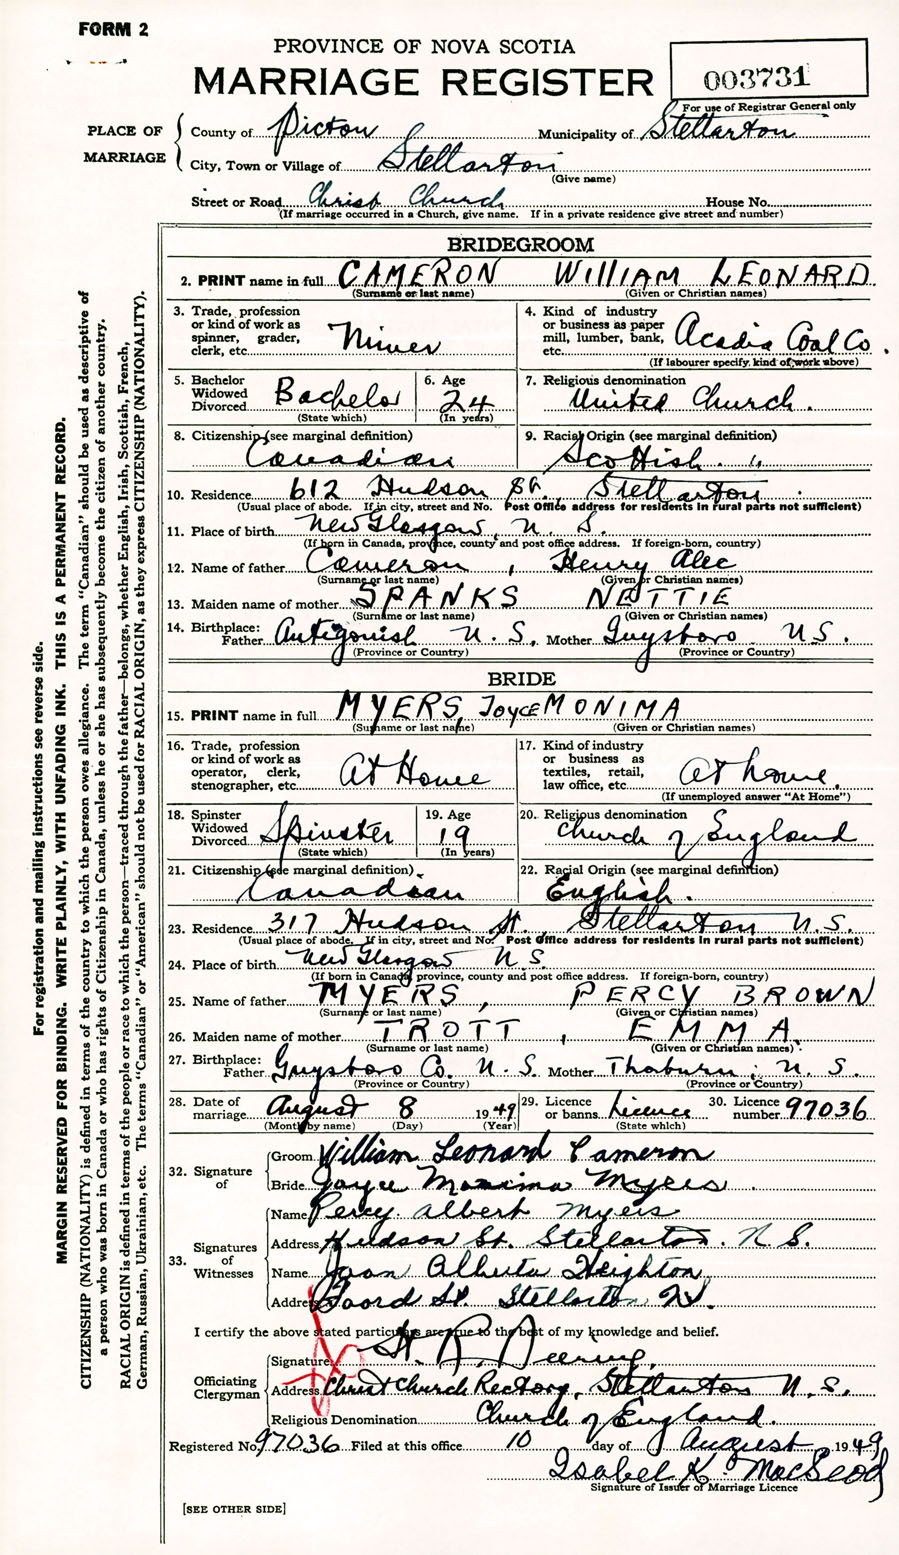 FORM 2
PROVINCE OF NOVA SCOTIA
MARRIAGE REGISTER
003731
For use of Registrar General only
PLACE OF MARRIAGE
County of Pictou Municipality of Stellarton
City, Town or Village of Stellarton
(Give name)
Street or Road Christ Church House No.
(If marriage occurred in a Church, give name. If in a private residence give street and number)
BRIDEGROOM
2. PRINT name in full CAMERON WILLIAM LEONARD
(Surname or last name) (Given or Christian names)
3. Trade, profession or kind of work as spinner, grader, clerk, etc. Miner
4. Kind of industry or business as paper mill, lumber, bank, etc. Acadia Coal Co.
(If labourer specify kind of work above)
5. Bachelor Widowed Divorced Bachelor
(State which)
6. Age 24
(In years)
7. Religious denomination United Church.
8. Citizenship (see marginal definition) Canadian
9. Racial Origin (see marginal definition) Scottish.
10. Residence 612 Hudson St., Stellarton
(Usual place of abode. If in city, street and No. Post Office address for residents in rural parts not sufficient)
11. Place of birth New Glasgow, N. S.
(If born in Canada, province, county and post office address. If foreign-born, country)
12. Name of father Cameron, Henry Alec
(Surname or last name) (Given or Christian names)
13. Maiden name of mother SPANKS NETTIE
(Surname or last name) (Given or Christian names)
14. Birthplace: Father Antigonish N. S. Mother Guysboro N.S.
(Province or Country) (Province or Country)
BRIDE
15. PRINT name in full MYERS, Joyce MONIMA
(Surname or last name) (Given or Christian names)
16. Trade, profession or kind of work as operator, clerk, stenographer, etc. At Home
17. Kind of industry or business as textiles, retail, law office, etc. At home.
(If unemployed answer "At Home")
18. Spinster Widowed Divorced Spinster
(State which)
19. Age 19
(In years)
20. Religious denomination Church of England
21. Citizenship (see marginal definition) Canadian
22. Racial Origin (see marginal definition) English.
23. Residence 317 Hudson St. Stellarton N.S.
(Usual place of abode. If in city, street and No. Post Office address for residents in rural parts not sufficient)
24. Place of birth New Glasgow N.S.
(If born in Canada, province, county and post office address. If foreign-born, country)
25. Name of father MYERS, PERCY BROWN
(Surname or last name) (Given or Christian names)
26. Maiden name of mother TROTT, EMMA.
(Surname or last name) (Given or Christian names)
27. Birthplace: Father Guysboro Co. N.S. Mother Thorburn, N.S.
(Province or Country) (Province or Country)
28. Date of marriage August 8 1949
(Month by name) (Day) (Year)
29. Licence or banns Licence
(State which)
30. Licence number 97036
32. Signature of
Groom William Leonard Cameron
Bride Joyce Monima Myers.
33. Signatures of Witnesses
Name Percy Albert Myers
Address Hudson St. Stellarton. N.S.
Name Joan Alberta Heighton
Address Foord St. Stellarton N.S.
I certify the above stated particulars are true to the best of my knowledge and belief.
Officiating Clergyman
Signature H. R. Deering.
Address Christ Church Rectory, Stellarton N.S.
Religious Denomination Church of England.
Registered No. 97036 Filed at this office 10 day of August 1949
Isabel K. MacLeod
Signature of Issuer of Marriage Licence
[SEE OTHER SIDE]
For registration and mailing instructions see reverse side.
MARGIN RESERVED FOR BINDING. WRITE PLAINLY, WITH UNFADING INK. THIS IS A PERMANENT RECORD.
CITIZENSHIP (NATIONALITY) is defined in terms of the country to which the person owes allegiance. The term "Canadian" should be used as descriptive of
a person who was born in Canada or who has rights of Citizenship in Canada, unless he or she has subsequently become the citizen of another country.
RACIAL ORIGIN is defined in terms of the people or race to which the person—traced through the father—belongs, whether English, Irish, Scottish, French,
German, Russian, Ukrainian, etc. The terms "Canadian" or "American" should not be used for RACIAL ORIGIN, as they express CITIZENSHIP (NATIONALITY).